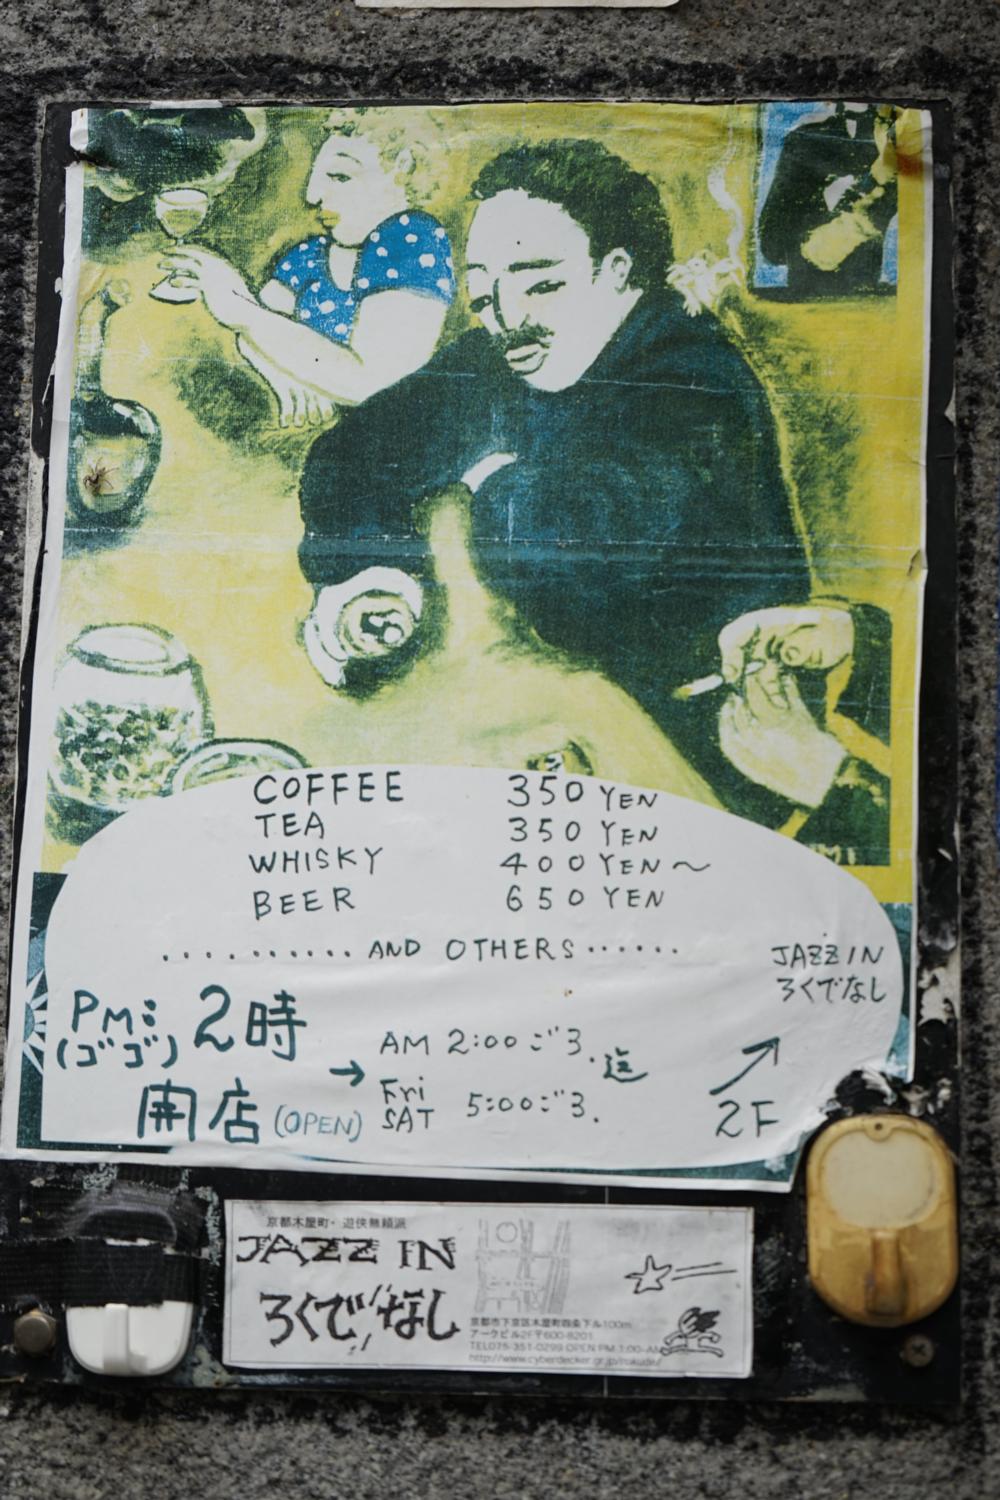 COFFEE 350 YEN
TEA 350 YEN
WHISKY 400 YEN～
BEER 650 YEN
.......... AND OTHERS ......
JAZZ IN
ろくでなし
PM: 2時
(ゴゴ)
開店 (OPEN)
→ AM 2:00ごろ. 迄
Fri
SAT 5:00ごろ.
2F
京都木屋町・遊侠無頼派
JAZZ IN
ろくでなし
京都市下京区木屋町四条下ル100m
アークビル2F〒600-8201
TEL075-351-0299 OPEN PM.1:00-AM
http://www.cyberdecker.gr.jp/rokude/